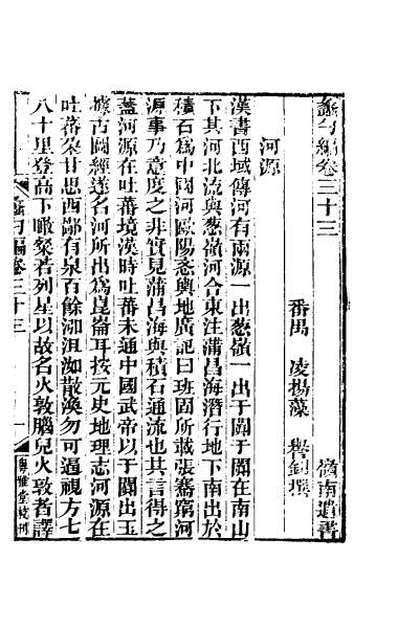 蠡勺編卷三十三
嶺南遺書
番禺 凌揚藻 譽釗撰
河源
漢書西域傳河有兩源一出葱嶺一出于闐于闐在南山
下其河北流與葱嶺河合東注蒲昌海潛行地下南出於
積石為中國河歐陽忞輿地廣記曰班固所載張騫窮河
源事乃意度之非實見蒲昌海與積石通流也其言得之
蓋河源在吐蕃境漢時吐蕃未通中國武帝以于闐出玉
據古圖經遂名河所出為崑崙耳按元史地理志河源在
吐蕃朵甘思西鄙有泉百餘泓沮洳散渙勿可逼視方七
八十里登高下瞰燦若列星以故名火敦腦兒火敦者譯
蠡勺編卷三十三
一
粵雅堂校刊